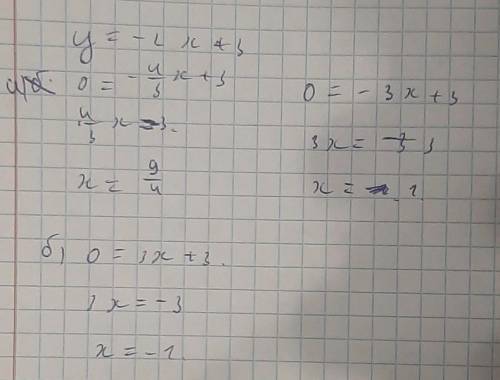 y = -2x + 3
0 = -4/3x + 3
4/3x = 3.
x = 9/4
0 = -3x + 3
3x = 3
x = 1
б) 0 = 3x + 3.
3x = -3
x = -1.